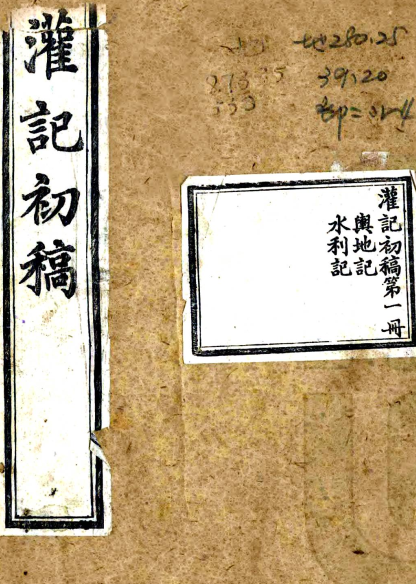 灌記初稿
灌記初稿第一冊
輿地記
水利記
地280.25
39.20